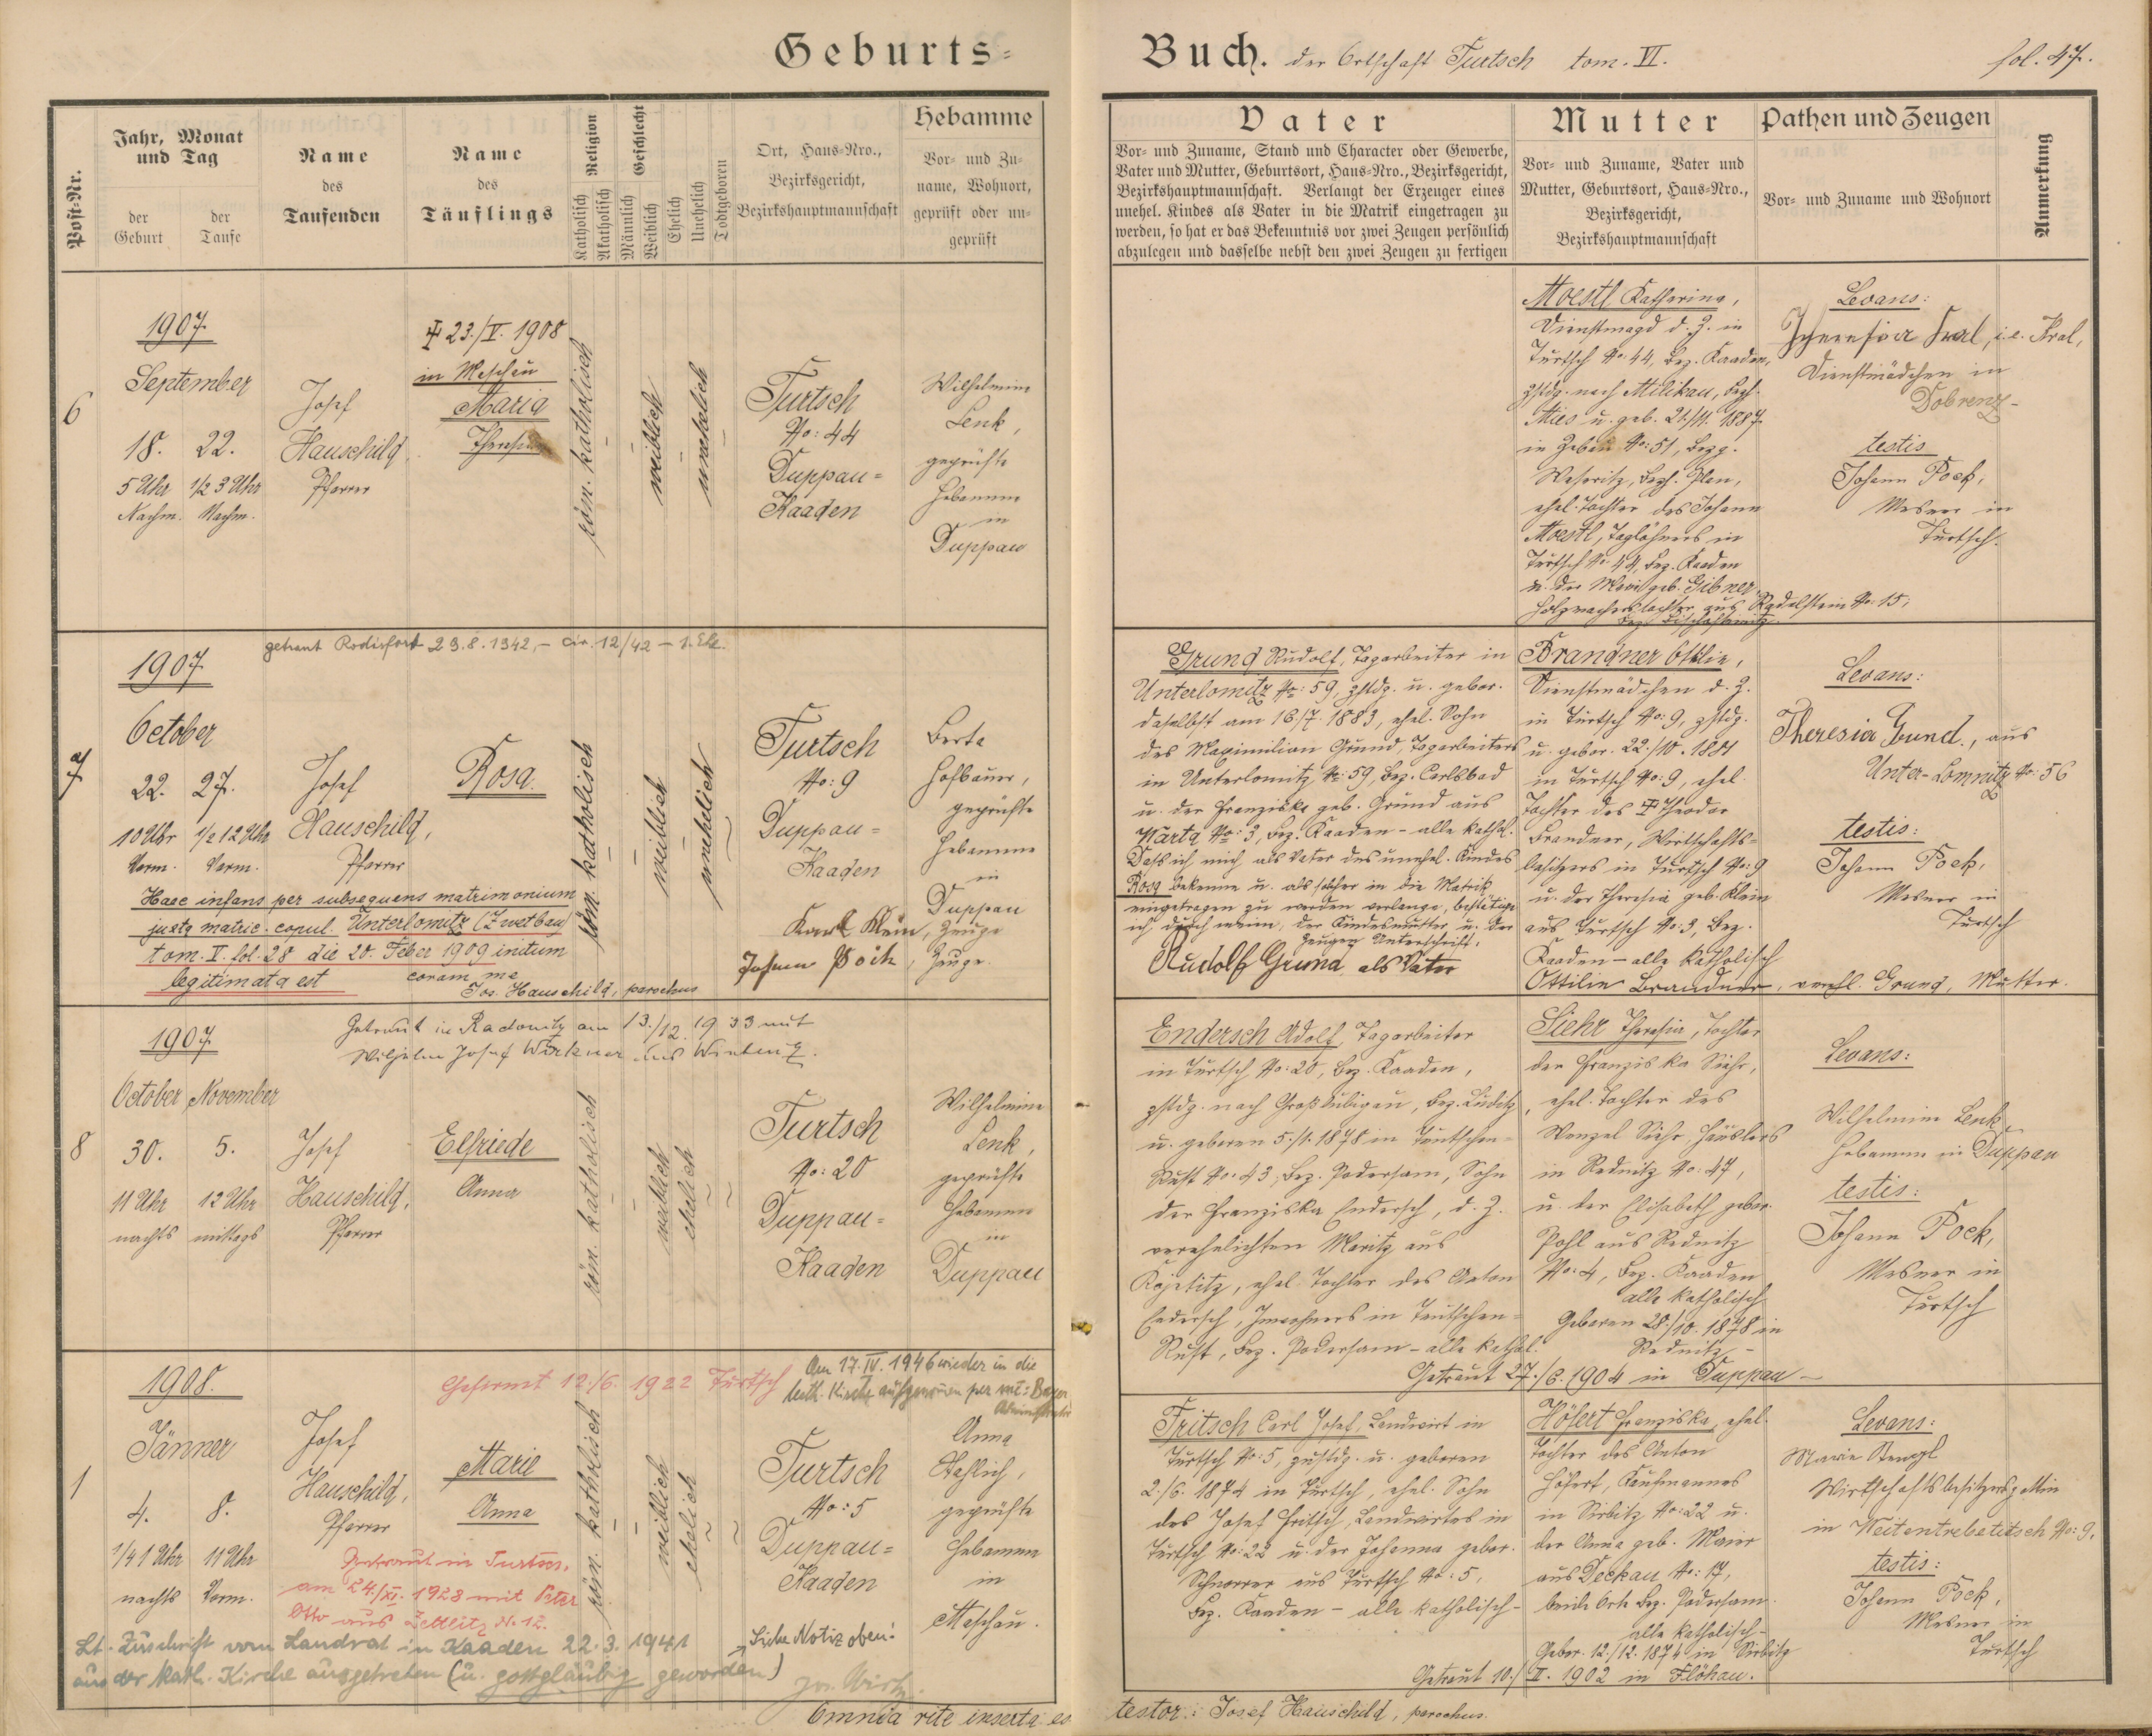 Geburts-
Buch. der Ortschaft Turtsch tom. VI. fol. 47.
Post-Nr.
Jahr, Monat
und Tag
der
Geburt
der
Taufe
Name
des
Taufenden
Name
des
Täuflings
Religion
Katholisch
Akatholisch
Geschlecht
Männlich
Weiblich
Ehelich
Unehelich
Todtgeboren
Ort, Haus-Nro.,
Bezirksgericht,
Bezirkshauptmannschaft
Hebamme
Vor- und Zu-
name, Wohnort,
geprüft oder un-
geprüft
Vater
Vor- und Zuname, Stand und Character oder Gewerbe,
Vater und Mutter, Geburtsort, Haus-Nro., Bezirksgericht,
Bezirkshauptmannschaft. Verlangt der Erzeuger eines
unehel. Kindes als Vater in die Matrik eingetragen zu
werden, so hat er das Bekenntnis vor zwei Zeugen persönlich
abzulegen und dasselbe nebst den zwei Zeugen zu fertigen
Mutter
Vor- und Zuname, Vater und
Mutter, Geburtsort, Haus-Nro.,
Bezirksgericht,
Bezirkshauptmannschaft
Pathen und Zeugen
Vor- und Zuname und Wohnort
Anmerkung
6
1907.
September
18. 22.
5 Uhr 1/2 3 Uhr
Nachm. Nachm.
Josef
Hauschild
Pfarrer
23./V. 1908
in Meschau
Maria
Theresia
röm. katholisch
weiblich
unehelich
Turtsch
No: 44
Duppau-
Kaaden
Wilhelmine
Lenk,
geprüfte
Hebamme
in
Duppau
Moestl Katharina,
Dienstmagd d. Z. in
Turtsch No: 44, Bez. Kaaden,
zstdg. nach Milikau, Bezh.
Mies u. geb. 21./11. 1887
in No: 51, Bezg.
Weseritz, Bezh. Plan,
ehel. Tochter des Johann
Moestl, Taglöhners in
Turtsch No: 44, Bez. Kaaden
u. der Maria geb. Gibner,
aus Radelstein No: 15,
Levans:
Theresia Kral, i.e. Kral,
Dienstmädchen in
Dobrenz-
testis
Johann Pock,
Mesner in
Turtsch.
7
getraut Rodisfort 29.8.1942, - Civ. 12/42 - 1. Ehe.
1907
October
22. 27.
10 Uhr 1/2 12 Uhr
Vorm. Vorm.
Josef
Hauschild,
Pfarrer
Rosa
röm. katholisch
weiblich
unehelich
Turtsch
No: 9
Duppau-
Kaaden
Berta
Hofbauer,
geprüfte
Hebamme
in
Duppau
Haec infans per subsequens matrimonium
juxta matric. copul. Unterlomitz (Zwetbau)
tom. V. fol. 28 die 20. Feber 1909 initum
legitimata est
coram me
Jos. Hauschild, parochus
Karl Klein, Zeuge
Johann Pöck, Zeuge.
Grund Rudolf, Tagarbeiter in
Unterlomitz No: 59, zstdg. u. gebor.
daselbst am 16./7. 1883, ehel. Sohn
des Maximilian Grund, Tagarbeiters
in Unterlomitz No: 59, Bez. Carlsbad
u. der Franziska geb. Grund aus
Warta No: 3, Bez. Kaaden - alle kathol.
Dass ich mich als Vater des unehel. Kindes
Rosa bekenne u. als solcher in die Matrik
eingetragen zu werden verlange, bestätige
ich durch meine, der Kindesmutter u. der
Zeugen Unterschrift.
Rudolf Grund als Vater
Brandner Ottilie,
Dienstmädchen d. Z.
in Turtsch No: 9, zstdg.
u. gebor. 22./10. 1881
in Turtsch No: 9, ehel.
Tochter des Theodor
Brandner, Wirtschafts-
besitzers in Turtsch No: 9
u. der Theresia geb. Klein
aus Turtsch No: 3, Bez.
Kaaden - alle katholisch
Ottilie Brandner, verehl. Grund, Mutter.
Levans:
Theresia Grund., aus
Unter-Lomnitz No: 56
testis:
Johann Pock,
Mesner in
Turtsch
8
1907
Getraut in Radonitz am 13./12. 1933 mit
Wilhelm Josef Wirkner aus Winteritz.
October November
30. 5.
11 Uhr 12 Uhr
nachts mittags
Josef
Hauschild,
Pfarrer
Elfriede
Anna
röm. katholisch
weiblich
ehelich
Turtsch
No: 20
Duppau-
Kaaden
Wilhelmine
Lenk,
geprüfte
Hebamme
in
Duppau
Endersch Adolf, Tagarbeiter
in Turtsch No: 20, Bez. Kaaden,
zstdg. nach Großlubigau, Bez. Luditz,
u. geboren 5./1. 1878 in Teutschen-
Rust No: 43, Bez. Podersam, Sohn
der Franziska Endersch, d. Z.
verehelichten Moritz aus
Kojetitz, ehel. Tochter des Anton
Endersch, Inwohners in Teutschen-
Rust, Bez. Podersam - alle kathol.
Getraut 27./6. 1904 in Duppau -
Siehr Theresia, Tochter
der Franziska Siehr,
ehel. Tochter des
Wenzel Siehr, Häuslers
in Rednitz No: 47,
u. der Elisabeth gebor.
Pohl aus Rednitz
No: 4, Bez. Kaaden
alle katholisch
Geboren 28./10. 1878 in
Rednitz -
Levans:
Wilhelmine Lenk,
Hebamme in Duppau
testis:
Johann Pock,
Mesner in
Turtsch
1
1908.
Gefirmt 12./6. 1922 Turtsch
Am 17. IV. 1946 wieder in die
kath. Kirche aufgenommen per mt:
Administrator
Jänner
4. 8.
1/4 1 Uhr 11 Uhr
nachts Vorm.
Josef
Hauschild,
Pfarrer
Marie
Anna
röm. katholisch
weiblich
ehelich
Turtsch
No: 5
Duppau-
Kaaden
Anna
geprüfte
Hebamme
in
Meschau.
Getraut in Turtsch.
am 24./XI. 1928 mit Peter
Otto aus Zettlitz N. 12.
Lt. Zuschrift vom Landrat in Kaaden 22.3.1941
aus der kath. Kirche ausgetreten (u. gottgläubig geworden)
Siehe Notiz oben!
Fritsch Carl Josef, Landwirt in
Turtsch No: 5, zustdg. u. geboren
2./6. 1874 in Turtsch, ehel. Sohn
des Josef Fritsch, Landwirtes in
Turtsch No: 22 u. der Johanna gebor.
Schnorrer aus Turtsch No: 5,
Bez. Kaaden - alle katholisch -
Höfert Franziska, ehel.
Tochter des Anton
Höfert, Kaufmannes
in Sirbitz No: 22 u.
der Anna geb. Maier
aus Deckau No: 17,
beide Orte Bez. Podersam
alle katholisch -
Gebor. 12./12. 1874 in Sirbitz
Getraut 10./II. 1902 in Flöhau.
Levans:
Marie Stengl
Wirtschaftsbesitzersgattin
in Weitentrebetitsch No: 9,
testis:
Johann Pock,
Mesner in
Turtsch
Omnia rite inserta es
testor: Josef Hauschild, parochus.